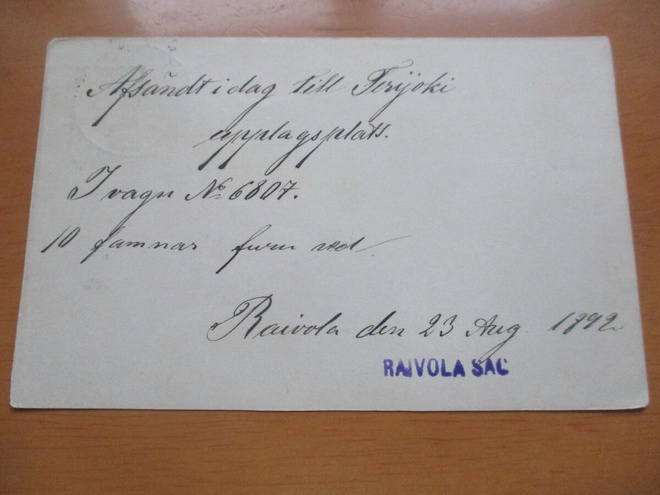 Afsändt i dag till Terijoki
upplagsplats.
I vagn No 6807.
10 famnar furu ved.
Raivola den 23 Aug 1892
RAIVOLA SÅG